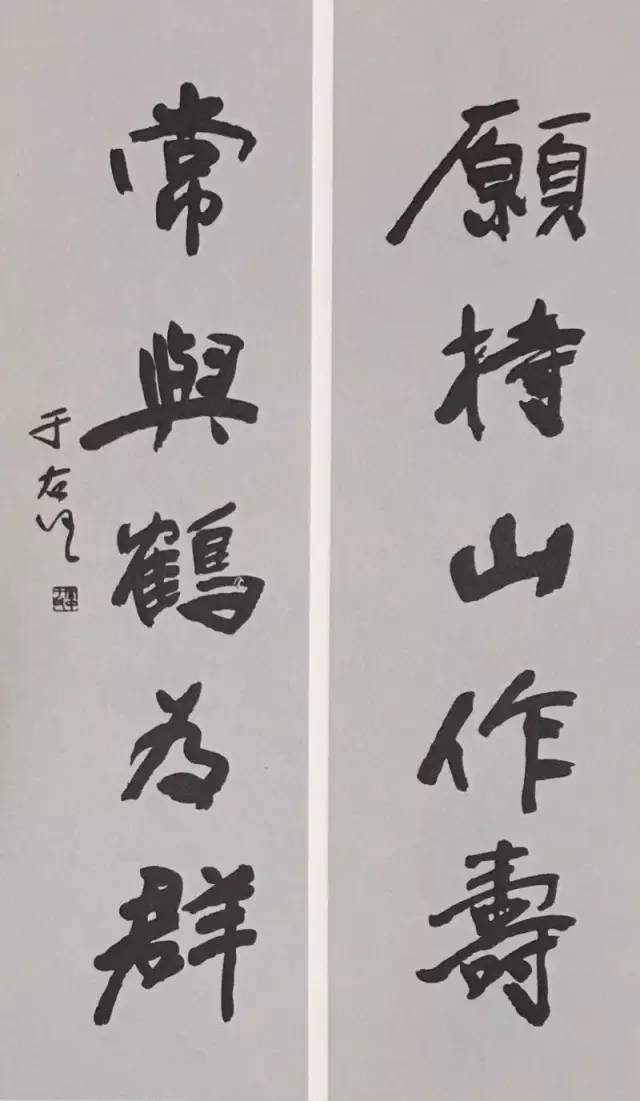 願持山作壽
常與鶴為群
于右任